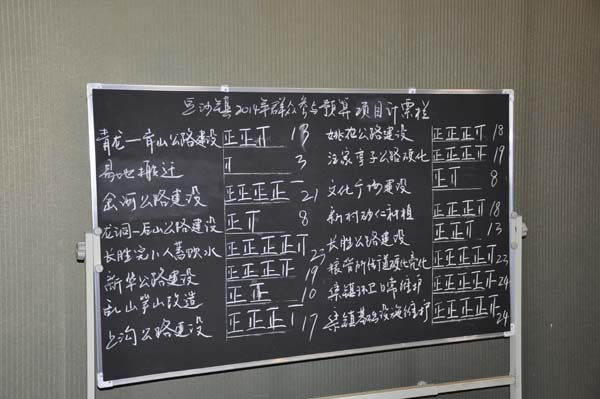 豆沙镇2014年群众参与预算项目计票栏
青龙一岩山公路建设 正正丅 13
易地搬迁 3
金河公路建设 正正正正 21
龙洞一后山公路建设 正 8
长胜完小人蓄饮水 正正正正
新华公路建设 正正正 19
乱山岩山改造 正正 10
上沟公路建设 正正正 17
公路建设 正正正 18
汪家弯子公路硬化 正正正 19
文化广场建设 正 8
新村砂仁种植 正正正 18
长胜公路建设 正正 13
粮管所街道硬化亮化 正正正正 23
集镇环卫日常维护 正正正正 24
集镇基础设施维护 正正正正 24